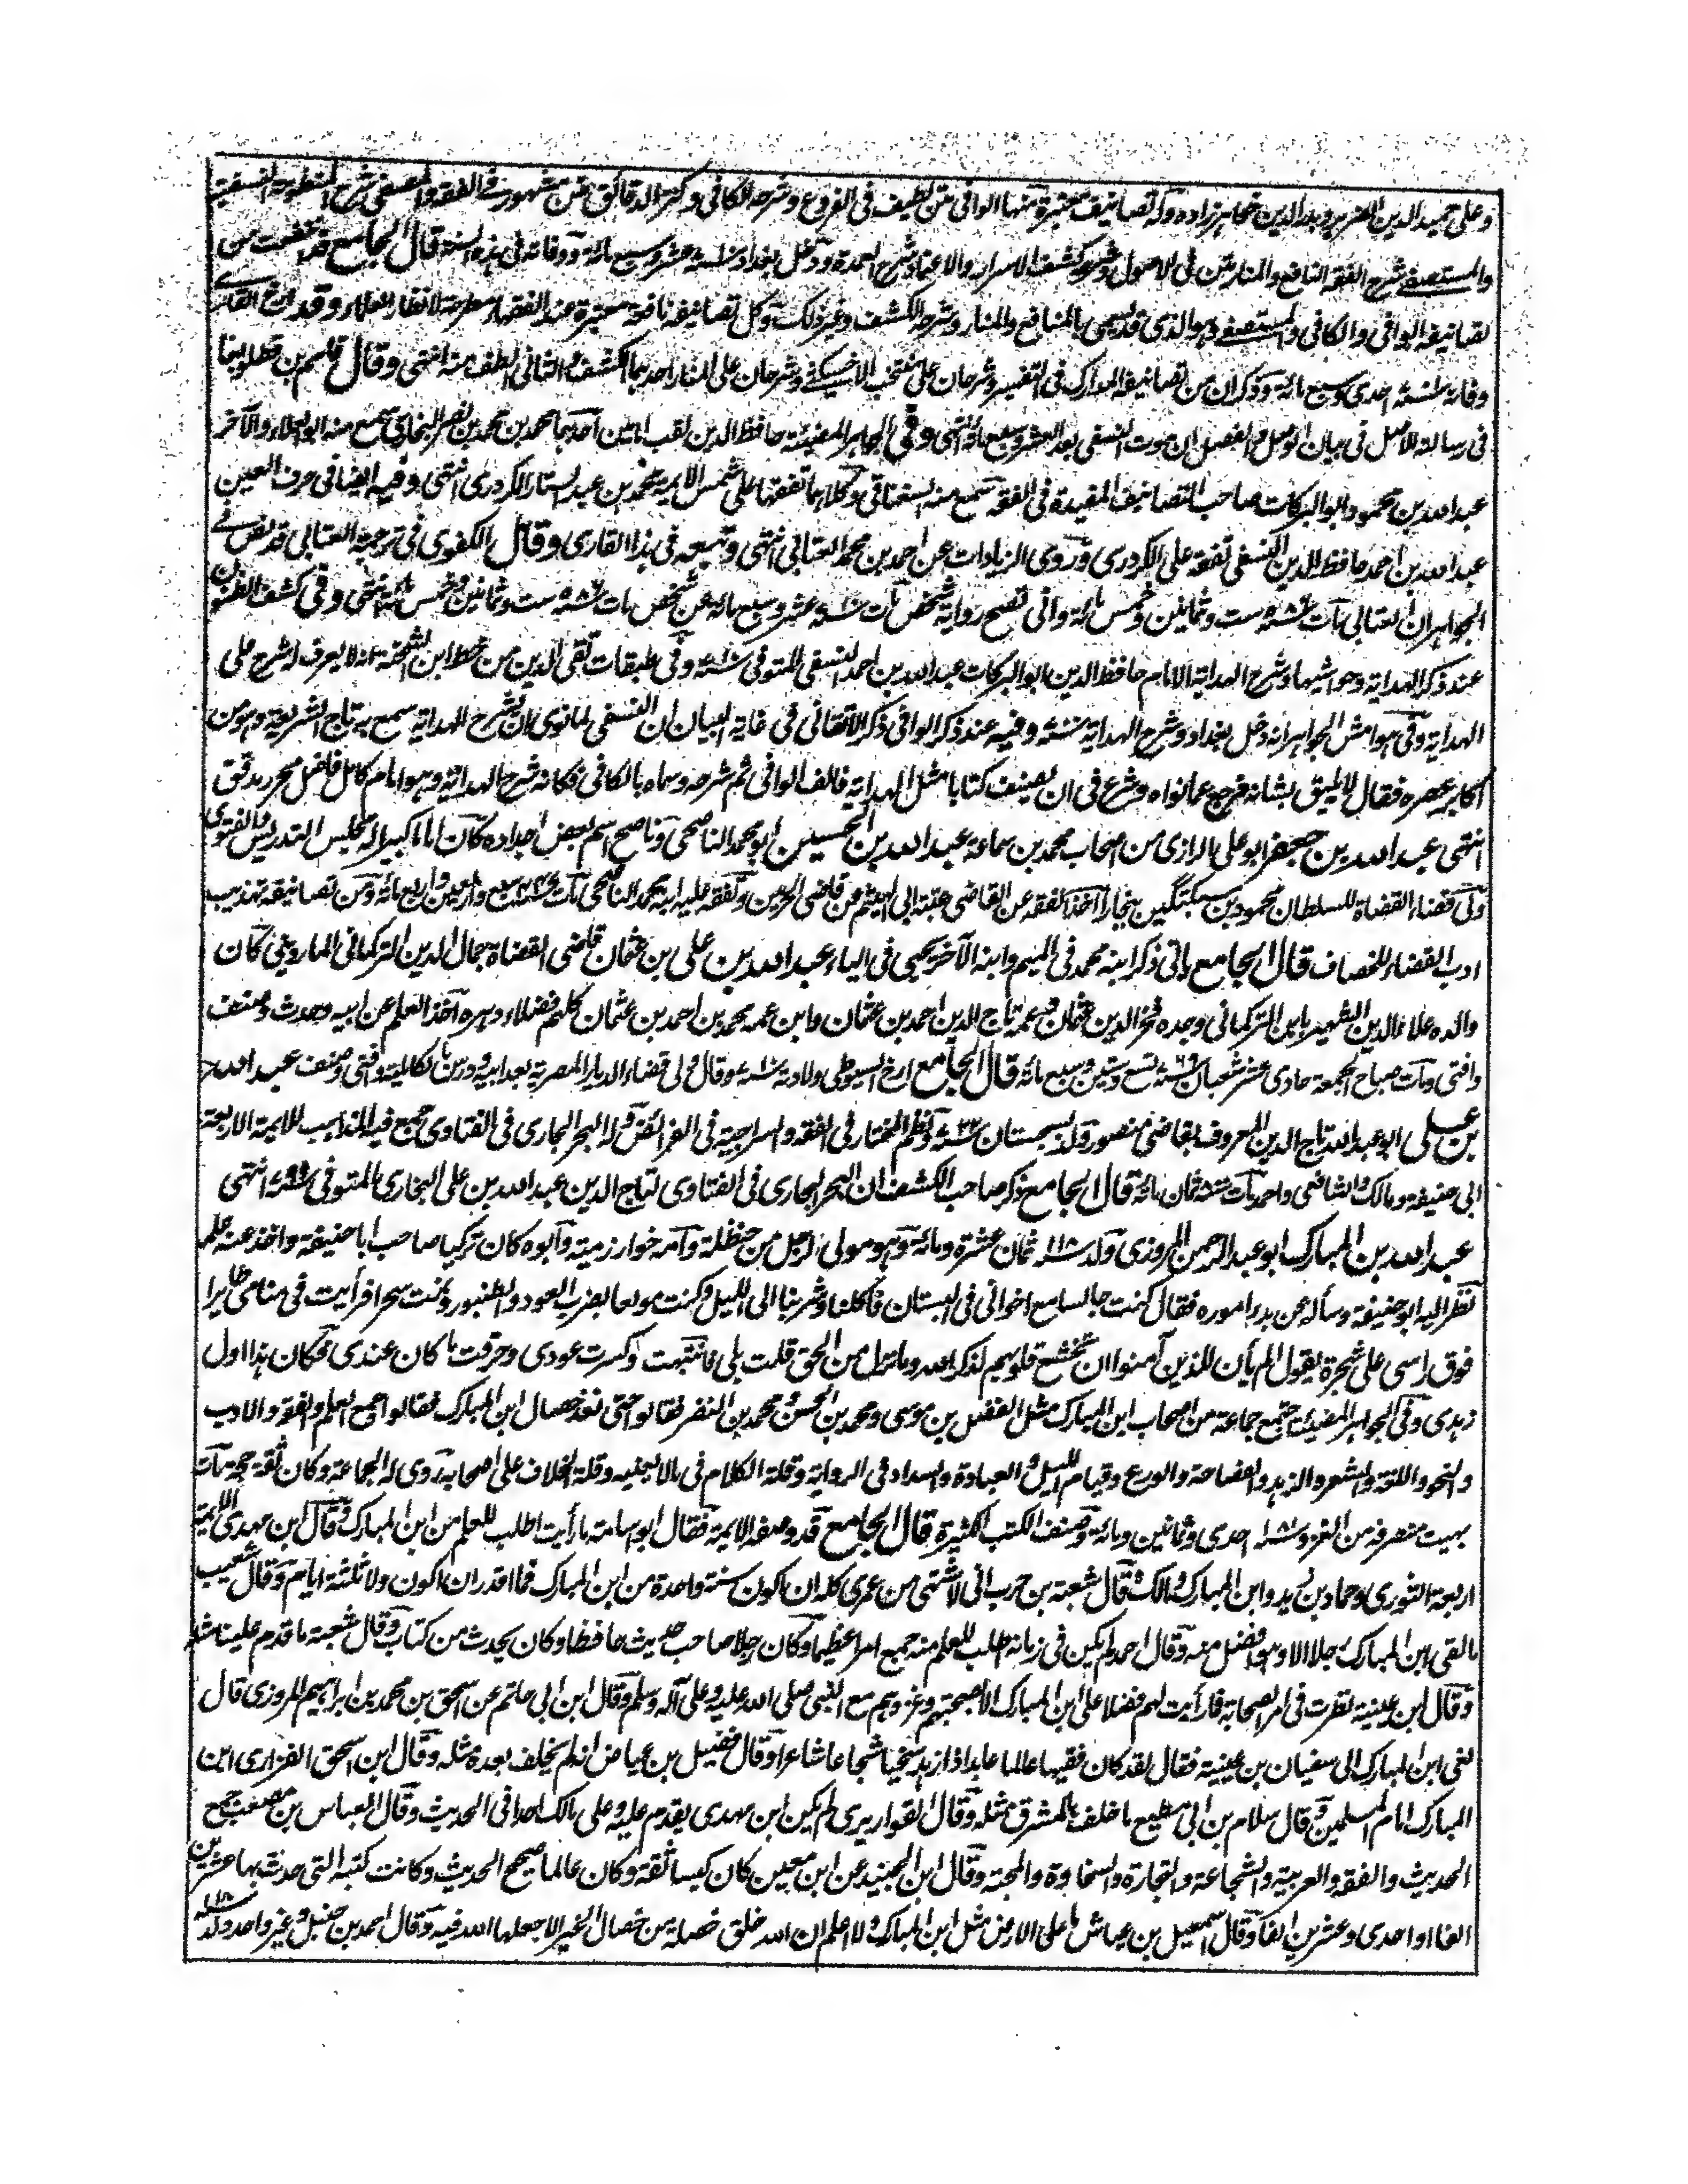 وعلى حميد الدين الضرير وبدر الدين خواهر زاده وله تصانيف معتبرة منها الوافى متن لطيف فى الفروع وشرحه الكافى وكنز الدقائق متن مشهور فى الفقه والمصفى شرح المنظومة النسفية
والمستصفى شرح الفقه النافع والمنار متن فى الاصول وشرحه كشف الاسرار والاعتماد شرح العمدة ودخل بغداد سنة ٧١٠ عشر وسبع مائة ووفاته فى هذه السنة قال الجامع قد من
تصانيفه الوافى والكافى والمستصفى وهو الذى قد يسمى بالمنافع والمنار وشرحه الكشف وغير ذلك وكل تصانيفه نافعة معتبرة عند الفقهاء مطرحة لانظار العلماء وقد ارخ القارى
وفاته سنة احدى وسبع مائة وذكر ان من تصانيفه المدارك فى التفسير وشرحان على منتخب الاخسيكثى وشرحان على المنار احدهما الكشف والثانى الطف منه انتهى وقال قاسم بن قطلوبغا
فى رسالة الاصل فى بيان الوصل والفصل ان موت النسفى بعد العشر وسبع مائة انتهى وفى الجواهر المضيئة حافظ الدين لقب امامين احدهما محمد بن محمد بن نصر البخارى سمع منه ابو العلاء والآخر
عبد الله بن محمود ابو البركات صاحب التصانيف المفيدة فى الفقه سمع منه السغناقى وكلاهما تفقها على شمس الايمة محمد بن عبد الستار الكردرى انتهى وفيه ايضا فى حرف العين
عبد الله بن احمد حافظ الدين النسفى تفقه على الكردرى وروى الزيادات عن احمد بن محمد العتابى انتهى وتبعه فى هذا القارى وقال الكفوى فى ترجمة العتابى قد نص فى
الجواهر ان العتابى مات سنة ٥٨٦ ست وثمانين وخمس مائة وانى تصح رواية شخص مات سنة ٧١٠ عشر وسبع مائة عن شخص مات سنة ٥٨٦ ست وثمانين وخمس مائة انتهى وفى كشف الظنون
عند ذكر الهداية وحواشيها وشرح الهداية الامام حافظ الدين ابو البركات عبد الله بن احمد النسفى المتوفى سنة ٧١٠ وفى طبقات تقى الدين من خط ابن الشحنة انه لا يعرف له شرح على
الهداية وفى هوامش الجواهر انه دخل بغداد وشرح الهداية سنة ٧٠٠ وفيه عند ذكر الوافى ذكر الاتقانى فى غاية البيان ان النسفى لما نوى ان يشرح الهداية سمع به تاج الشريعة وهو من
اكابر عصره فقال لا يليق بشانه فرجع عما نواه وشرع فى ان يصنف كتابا مثل الهداية فالف الوافى ثم شرحه وسماه بالكافى فكانه شرح الهداية وهو امام كامل فاضل محرر مدقق
انتهى عبد الله بن جعفر ابو على الرازى من اصحاب محمد بن سماعة عبد الله بن الحسين ابو محمد الناصحى وناصح اسم بعض اجداده كان اماما كبيرا له مجلس التدريس والفتوى
ولى قضاء القضاة للسلطان محمود بن سبكتگين ببخارا اخذ الفقه عن القاضى عتبة ابى الهيثم عن قاضى الحرمين وتفقه عليه ابنه محمد الناصحى مات سنة ٤٤٧ سبع واربعين واربع مائة ومن تصانيفه تهذيب
ادب القضاء للخصاف قال الجامع ياتى ذكر ابنه محمد فى الميم وابنه الآخر يحيى فى الياء عبد الله بن على بن عثمان قاضى القضاة جمال الدين التركمانى الماردينى كان
والده علاء الدين الشهير بابن التركمانى وجده فخر الدين عثمان وعمه تاج الدين احمد بن عثمان وابن عمه محمد بن احمد بن عثمان كلهم فضلاء دهره اخذ العلم عن ابيه وحدث وصنف
وافتى ومات صباح الجمعة حادى عشر شعبان سنة ٧٦٩ تسع وستين وسبع مائة قال الجامع ارخ السيوطى ولادته سنة ٧١٠ وقال ولى قضاء الديار المصرية بعد ابيه ودرس بالكاملية وافتى وصنف عبد الله
بن على ابو عبد الله تاج الدين المعروف بقاضى منصور ولد بسجستان سنة ٧٢٢ ونظم المختار فى الفقه والسراجية فى الفرائض وله البحر الجارى فى الفتاوى جمع فيه المذاهب للايمة الاربعة
ابى حنيفة ومالك والشافعى واحمد مات سنة ثمان مائة قال الجامع ذكر صاحب الكشف ان البحر الجارى فى الفتاوى لتاج الدين عبد الله بن على البخارى المتوفى سنة ٧٩٩ انتهى
عبد الله بن المبارك ابو عبد الرحمن المروزى ولد سنة ١١٨ ثمان عشرة ومائة وهو مولى لرجل من حنظلة وامه خوارزمية وابوه كان تركيا صاحب ابا حنيفة واخذ عنه علمه
نظر اليه ابو حنيفة وسأله عن بدء اموره فقال كنت جالسا مع اخوانى فى البستان فاكلنا وشربنا الى الليل وكنت مولعا بضرب العود والطنبور ونمت سحرا فرأيت فى منامى طايرا
فوق راسى على شجرة يقول الم يأن للذين آمنوا ان تخشع قلوبهم لذكر الله وما نزل من الحق قلت بلى فانتبهت وكسرت عودى وحرقت ما كان عندى فكان هذا اول
زهدى وفى الجواهر المضيئة اجتمع جماعة من اصحاب ابن المبارك مثل الفضل بن موسى ومحمد بن الحسن ومحمد بن النضر فقالوا حتى نعد خصال ابن المبارك فقالوا جمع العلم والفقه والادب
والنحو واللغة والشعر والزهد والفصاحة والورع وقيام الليل والعبادة والسداد فى الرواية وقلة الكلام فى ما لا يعنيه وقلة الخلاف على اصحابه روى له الجماعة وكان ثقة حجة مات
بهيت منصرفه من الغزو سنة ١٨١ احدى وثمانين ومائة وصنف الكتب الكثيرة قال الجامع قد وصفه الايمة فقال ابو اسامة ما رأيت اطلب للعلم من ابن المبارك وقال ابن مهدى الايمة
اربعة الثورى وحماد بن زيد وابن المبارك ومالك وقال شعبة بن حرب انى لاشتهى من عمرى كله ان اكون سنة واحدة من ابن المبارك فما اقدر ان اكون ولا ثلثة ايام وقال شعيب
ما لقى ابن المبارك رجلا الا وهو افضل منه وقال احمد لم يكن فى زمانه اطلب للعلم منه جمع امرا عظيما وكان رجلا صاحب حديث حافظا وكان يحدث من كتاب وقال شعبة ما قدم علينا مثله
وقال ابن عيينة نظرت فى امر الصحابة فما رأيت لهم فضلا على ابن المبارك الا بصحبتهم وغزوهم مع النبى صلى الله عليه وعلى آله وسلم وقال ابن ابى حاتم عن اسحق بن محمد بن ابراهيم المروزى قال
نعى ابن المبارك الى سفيان بن عيينة فقال لقد كان فقيها عالما عابدا زاهدا سخيا شجاعا شاعرا وقال فضيل بن عياض انه لم يخلف بعده مثله وقال ابن اسحق الفزارى ابن
المبارك امام المسلمين وقال سلام بن ابى مطيع ما خلف بالمشرق مثله وقال القواريرى لم يكن ابن مهدى يقدم عليه وعلى مالك احدا فى الحديث وقال العباس بن مصعب جمع
الحديث والفقه والعربية والشجاعة والتجارة والسخاوة والمحبة وقال ابن الجنيد عن ابن معين كان كيسا ثقة وكان عالما صحيح الحديث وكانت كتبه التى حدث بها عشرين
الفا او احدى وعشرين الفا وقال اسمعيل بن عياش ما على الارض مثل ابن المبارك ولا اعلم ان الله خلق خصلة من خصال الخير الا جعلها الله فيه وقال احمد بن حنبل وغير واحد ولد سنة ١١٨